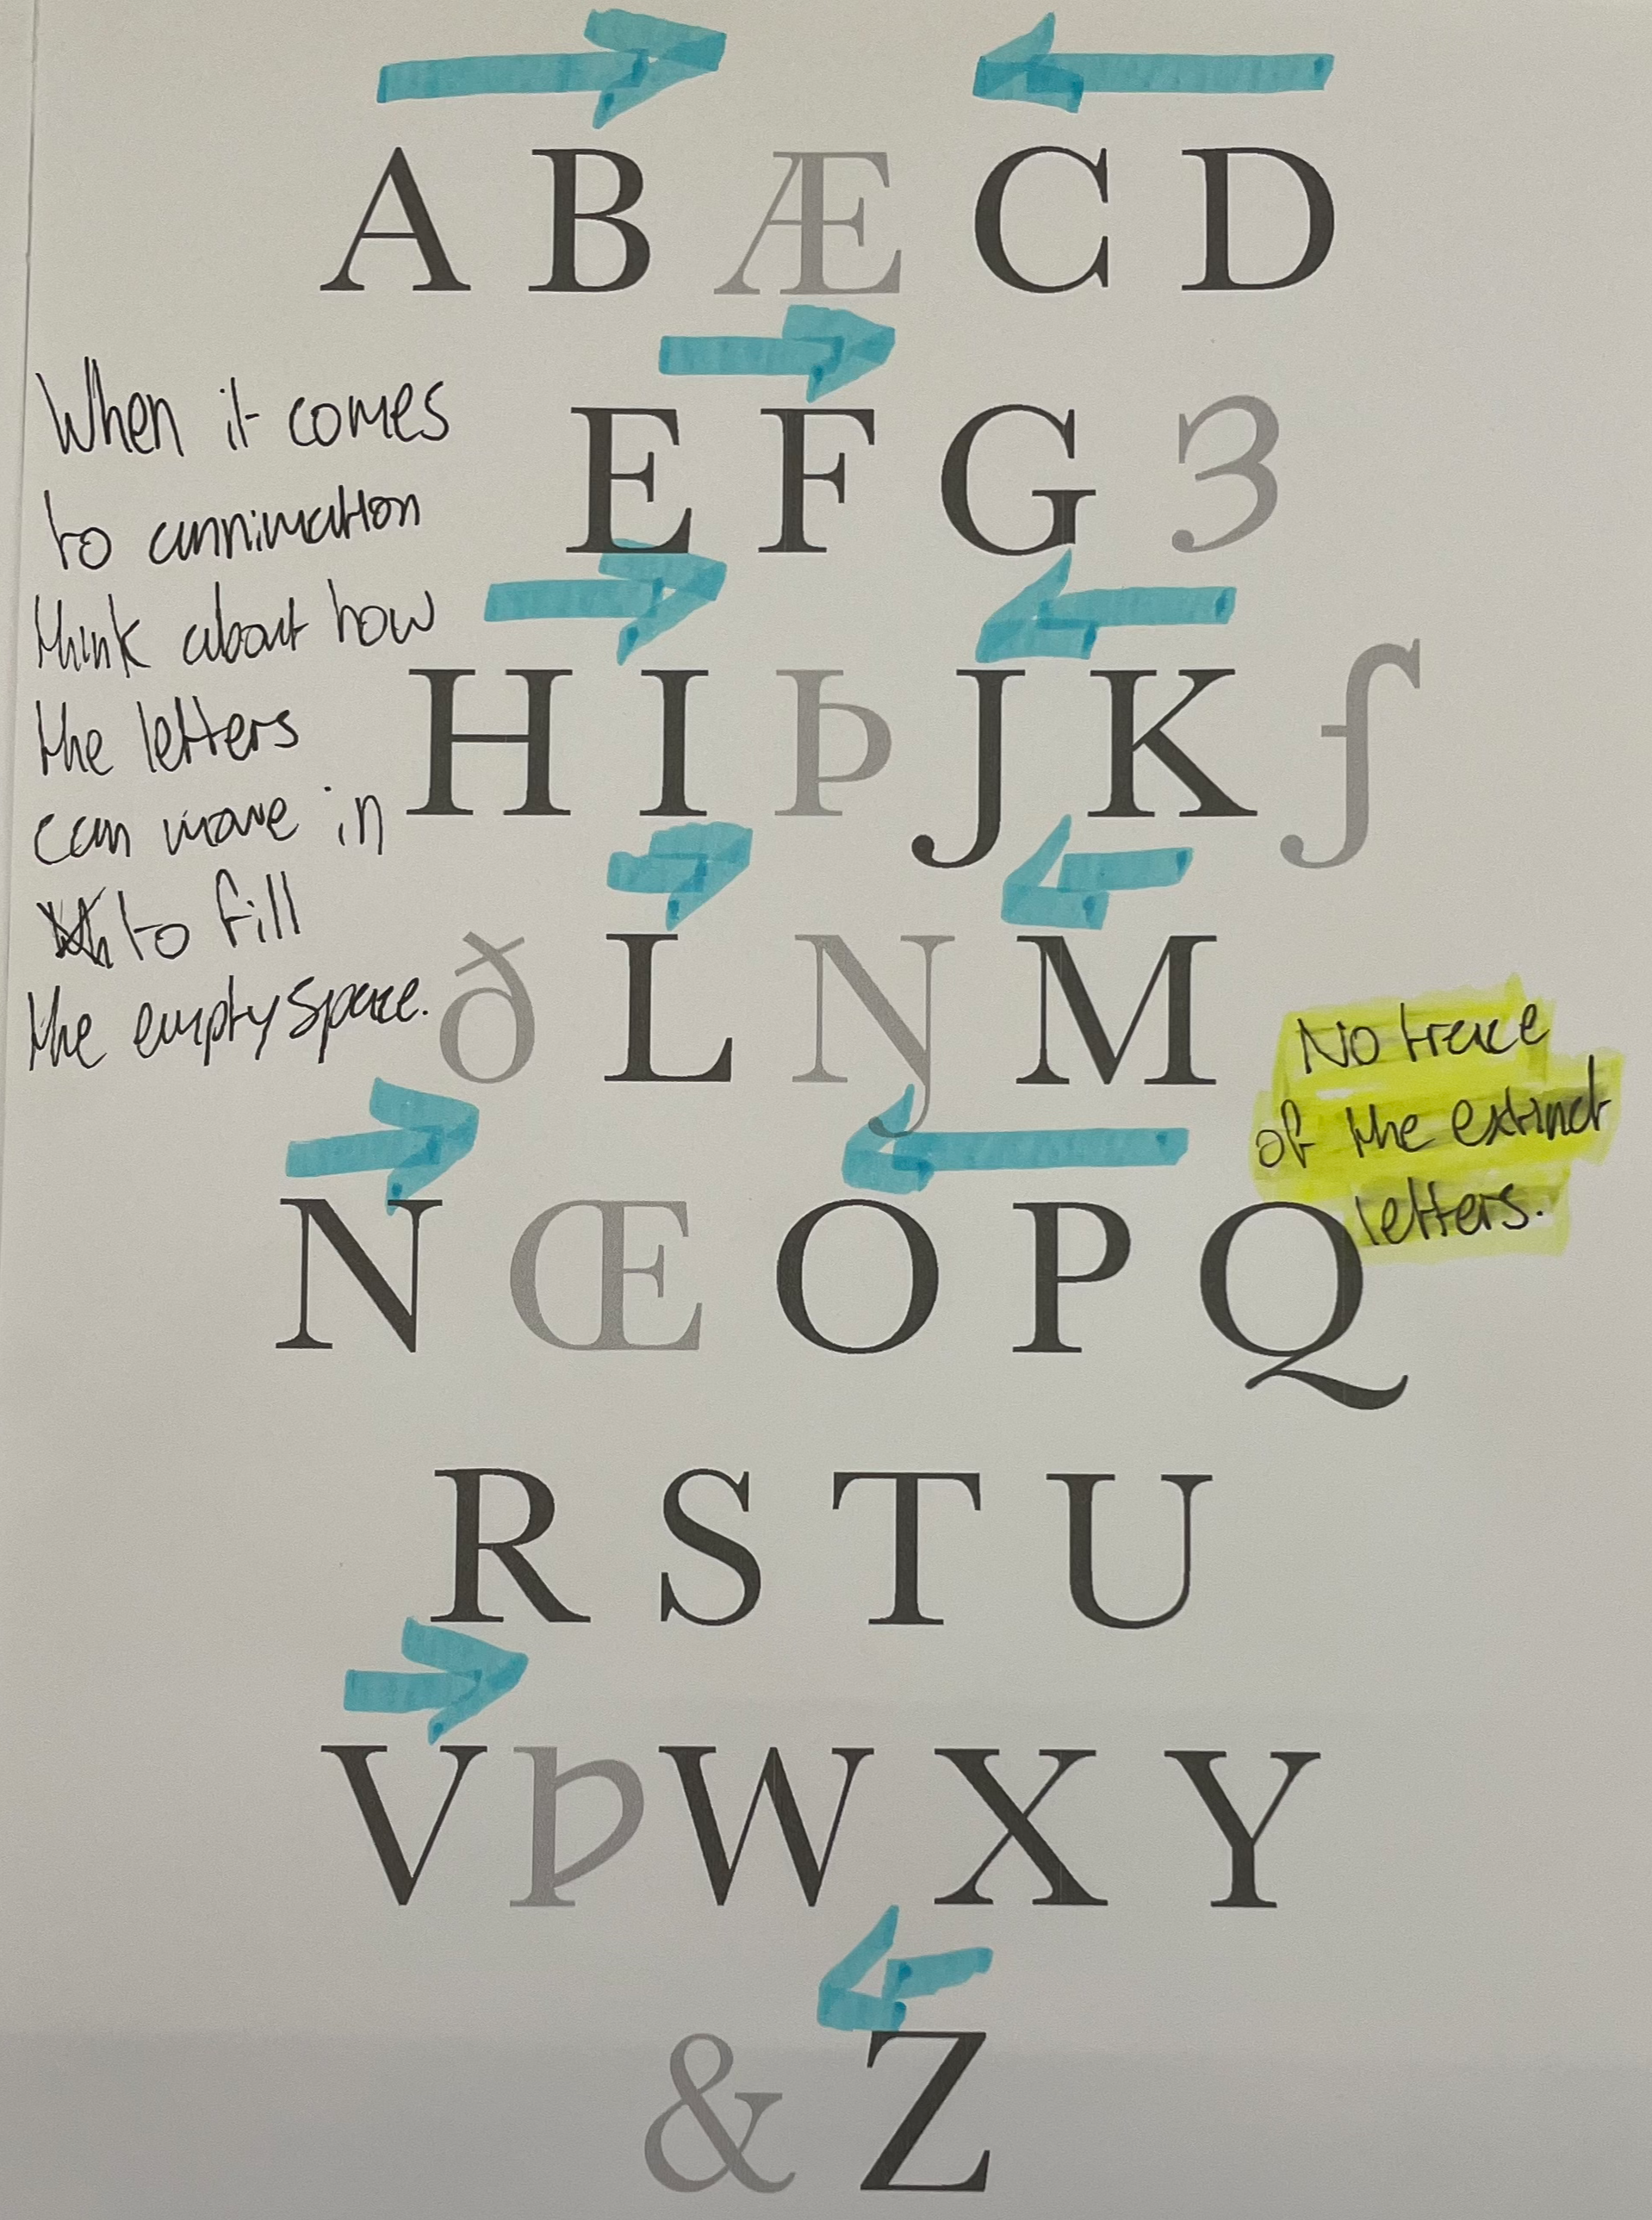 A B Æ C D
When it comes
to annimation
think about how
the letters
can move in
to fill
the empty space.
E F G Ȝ
H I Þ J K ʄ
ð L Ŋ M
No trace
of the extinct
letters.
N Œ O P Q
R S T U
V Ƿ W X Y
& Z